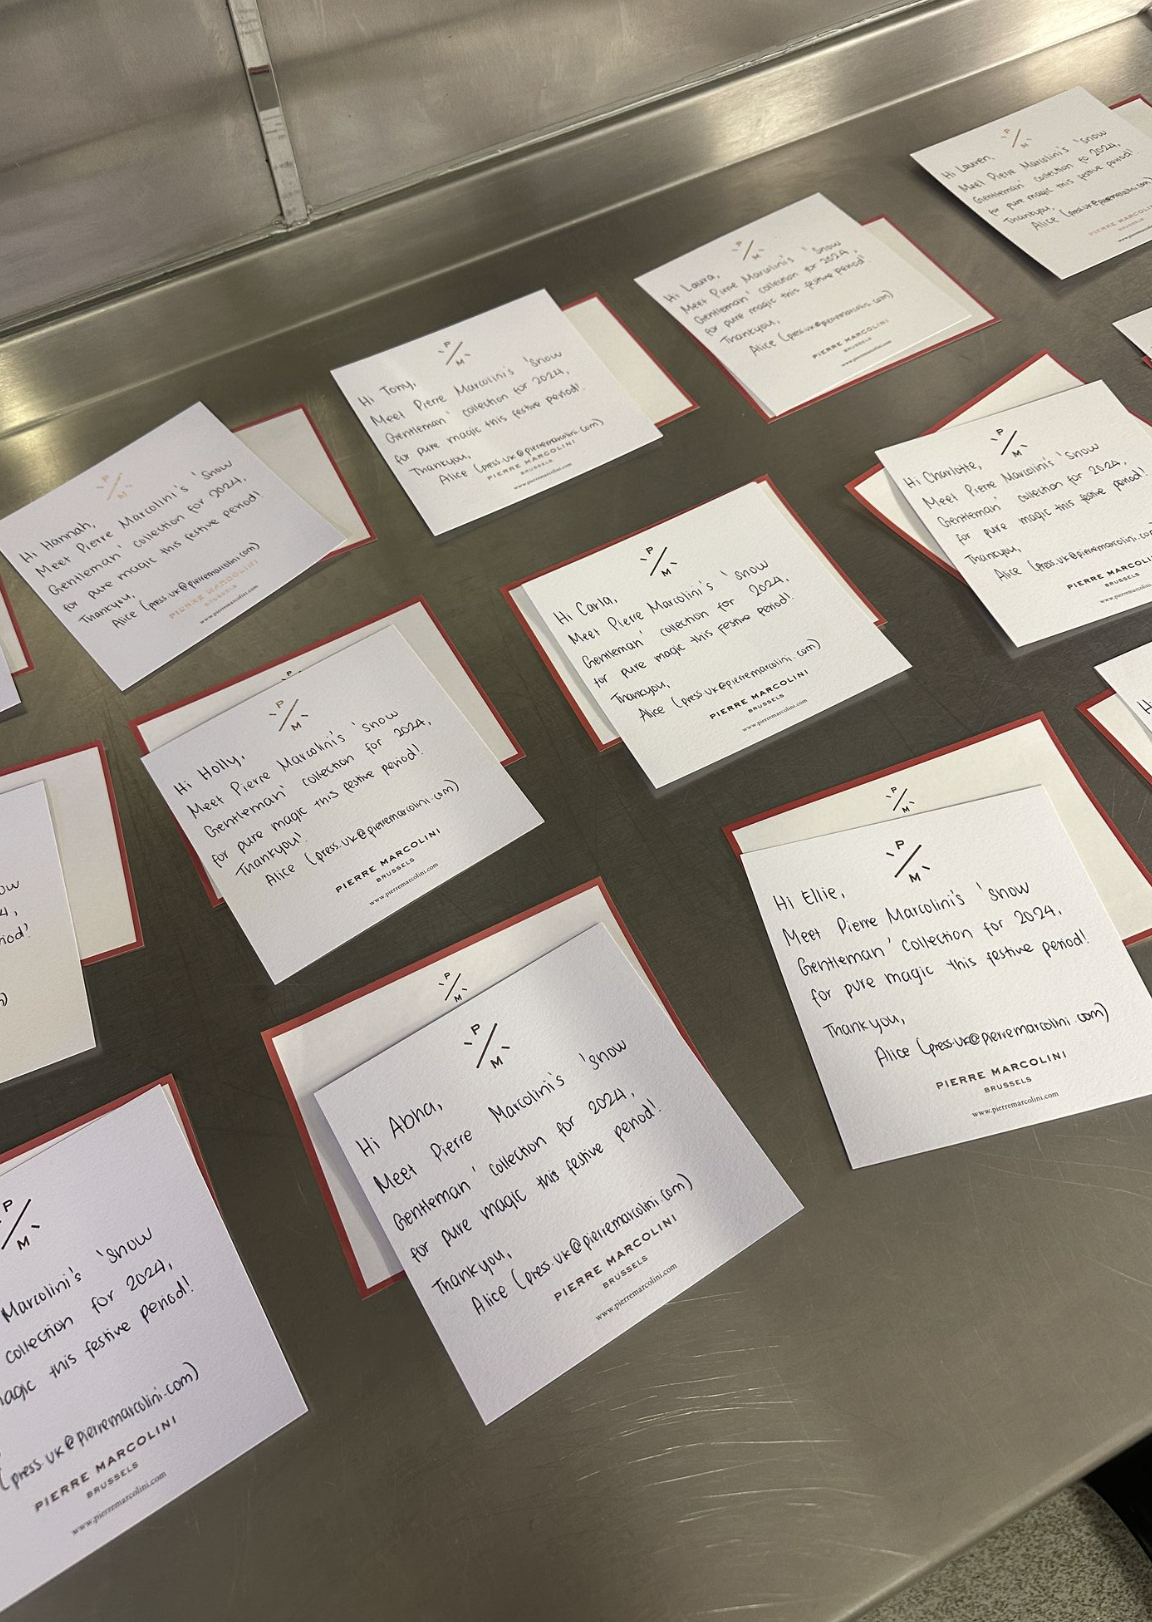 Hi Lauren,
Meet Pierre Marcolini's 'Snow
Gentleman' collection for 2024,
for pure magic this festive period!
Thankyou,
Alice (press.uk@pierremarcolini.com)
PIERRE MARCOLINI
www.pierremarcolini
P
M
Hi Laura,
Meet Pierre Marcolini's 'Snow
Gentleman' collection for 2024,
for pure magic this festive period!
Thankyou,
Alice (press.uk@pierremarcolini.com)
PIERRE MARCOLINI
BRUSSELS
www.pierremarcolini.com
P
M
Hi Tony,
Meet Pierre Marcolini's 'Snow
Gentleman' collection for 2024,
for pure magic this festive period!
Thankyou,
Alice (press.uk@pierremarcolini.com)
PIERRE MARCOLINI
BRUSSELS
www.pierremarcolini.com
P
M
Hi Hannah,
Meet Pierre Marcolini's 'Snow
Gentleman' collection for 2024,
for pure magic this festive period!
Thankyou,
Alice (press.uk@pierremarcolini.com)
PIERRE MARCOLINI
BRUSSELS
www.pierremarcolini.com
P
M
Hi Charlotte,
Meet Pierre Marcolini's 'Snow
Gentleman' collection for 2024,
for pure magic this festive period!
Thankyou,
Alice (press.uk@pierremarcolini.com
PIERRE MARCOLINI
BRUSSELS
www.pierremarcolini.com
P
M
Hi Carla,
Meet Pierre Marcolini's 'Snow
Gentleman' collection for 2024,
for pure magic this festive period!
Thankyou,
Alice (press.uk@pierremarcolini.com)
PIERRE MARCOLINI
BRUSSELS
www.pierremarcolini.com
P
M
Hi Holly,
Meet Pierre Marcolini's 'Snow
Gentleman' collection for 2024,
for pure magic this festive period!
Thankyou!
Alice (press.uk@pierremarcolini.com)
PIERRE MARCOLINI
BRUSSELS
www.pierremarcolini.com
P
M
P
M
Hi Ellie,
Meet Pierre Marcolini's 'Snow
Gentleman' collection for 2024,
for pure magic this festive period!
Thankyou,
Alice (press.uk@pierremarcolini.com)
PIERRE MARCOLINI
BRUSSELS
www.pierremarcolini.com
P
M
P
M
Hi Abha,
Meet Pierre Marcolini's 'Snow
Gentleman' collection for 2024,
for pure magic this festive period!
Thankyou,
Alice (press.uk@pierremarcolini.com)
PIERRE MARCOLINI
BRUSSELS
www.pierremarcolini.com
P
M
Marcolini's 'Snow
collection for 2024,
magic this festive period!
(press.uk@pierremarcolini.com)
PIERRE MARCOLINI
BRUSSELS
www.pierremarcolini.com